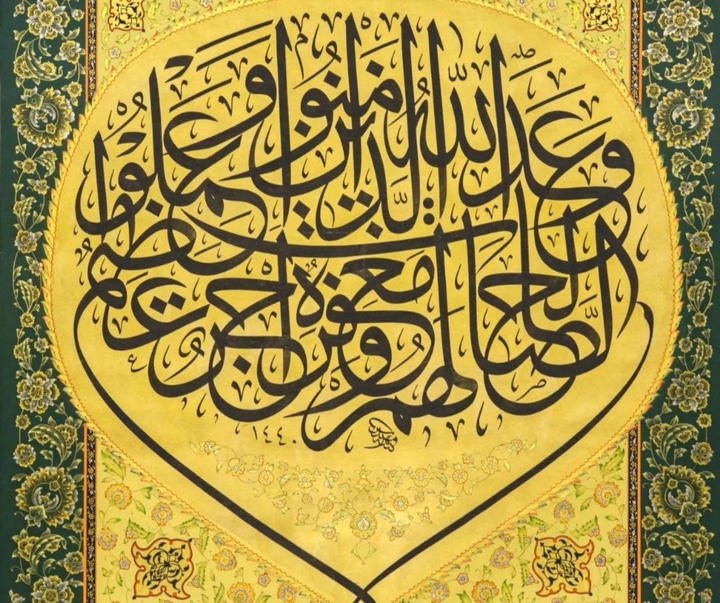 وَعَدَ اللّٰهُ الَّذِينَ اٰمَنُوا وَعَمِلُوا
الصَّالِحَاتِ لَهُمْ مَغْفِرَةٌ وَاَجْرٌ عَظِيمٌ
١٤٤٠